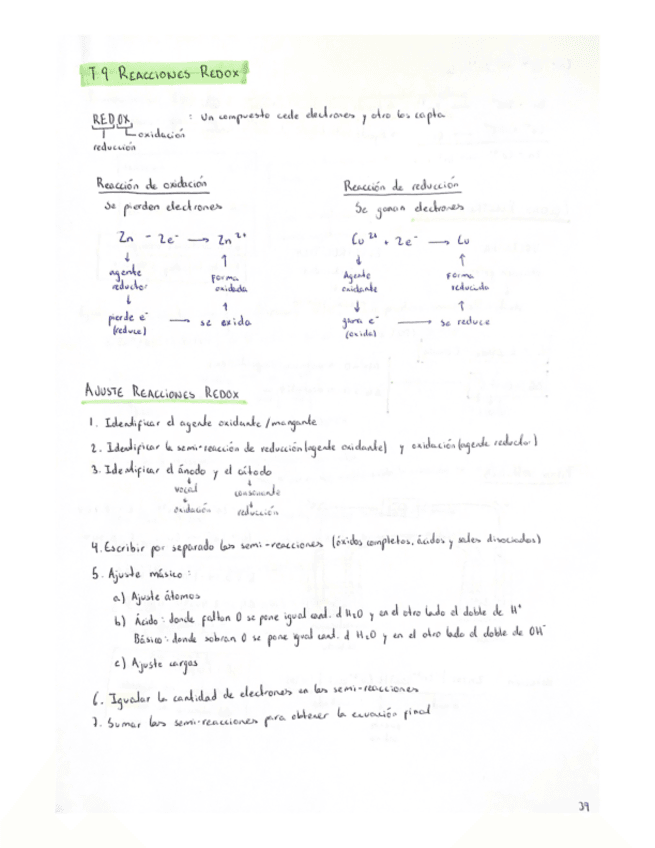 T.9 REACCIONES REDOX
REDOX : Un compuesto cede electrones y otro los capta
oxidación
reducción
Reacción de oxidación
Se pierden electrones
Zn - 2e⁻ → Zn²⁺
↓ ↑
agente reductor forma oxidada
↓ ↑
pierde e⁻ (reduce) → se oxida
Reacción de reducción
Se ganan electrones
Cu²⁺ + 2e⁻ → Cu
↓ ↑
Agente oxidante Forma reducida
↓ ↑
gana e⁻ (oxida) → se reduce
AJUSTE REACCIONES REDOX
1. Identificar el agente oxidante /
2. Identificar la semi-reacción de reducción (agente oxidante) y oxidación (agente reductor)
3. Identificar el ánodo y el cátodo
↓ ↓
vocal consonante
↓ ↓
oxidación reducción
4. Escribir por separado las semi-reacciones (óxidos completos, ácidos y sales disociados)
5. Ajuste másico:
a) Ajuste átomos
b) Ácido: donde faltan O se pone igual cant. d H₂O y en el otro lado el doble de H⁺
Básico: donde sobran O se pone igual cant. d H₂O y en el otro lado el doble de OH⁻
c) Ajuste cargas
6. Igualar la cantidad de electrones en las semi-reacciones
7. Sumar las semi-reacciones para obtener la ecuación final
39